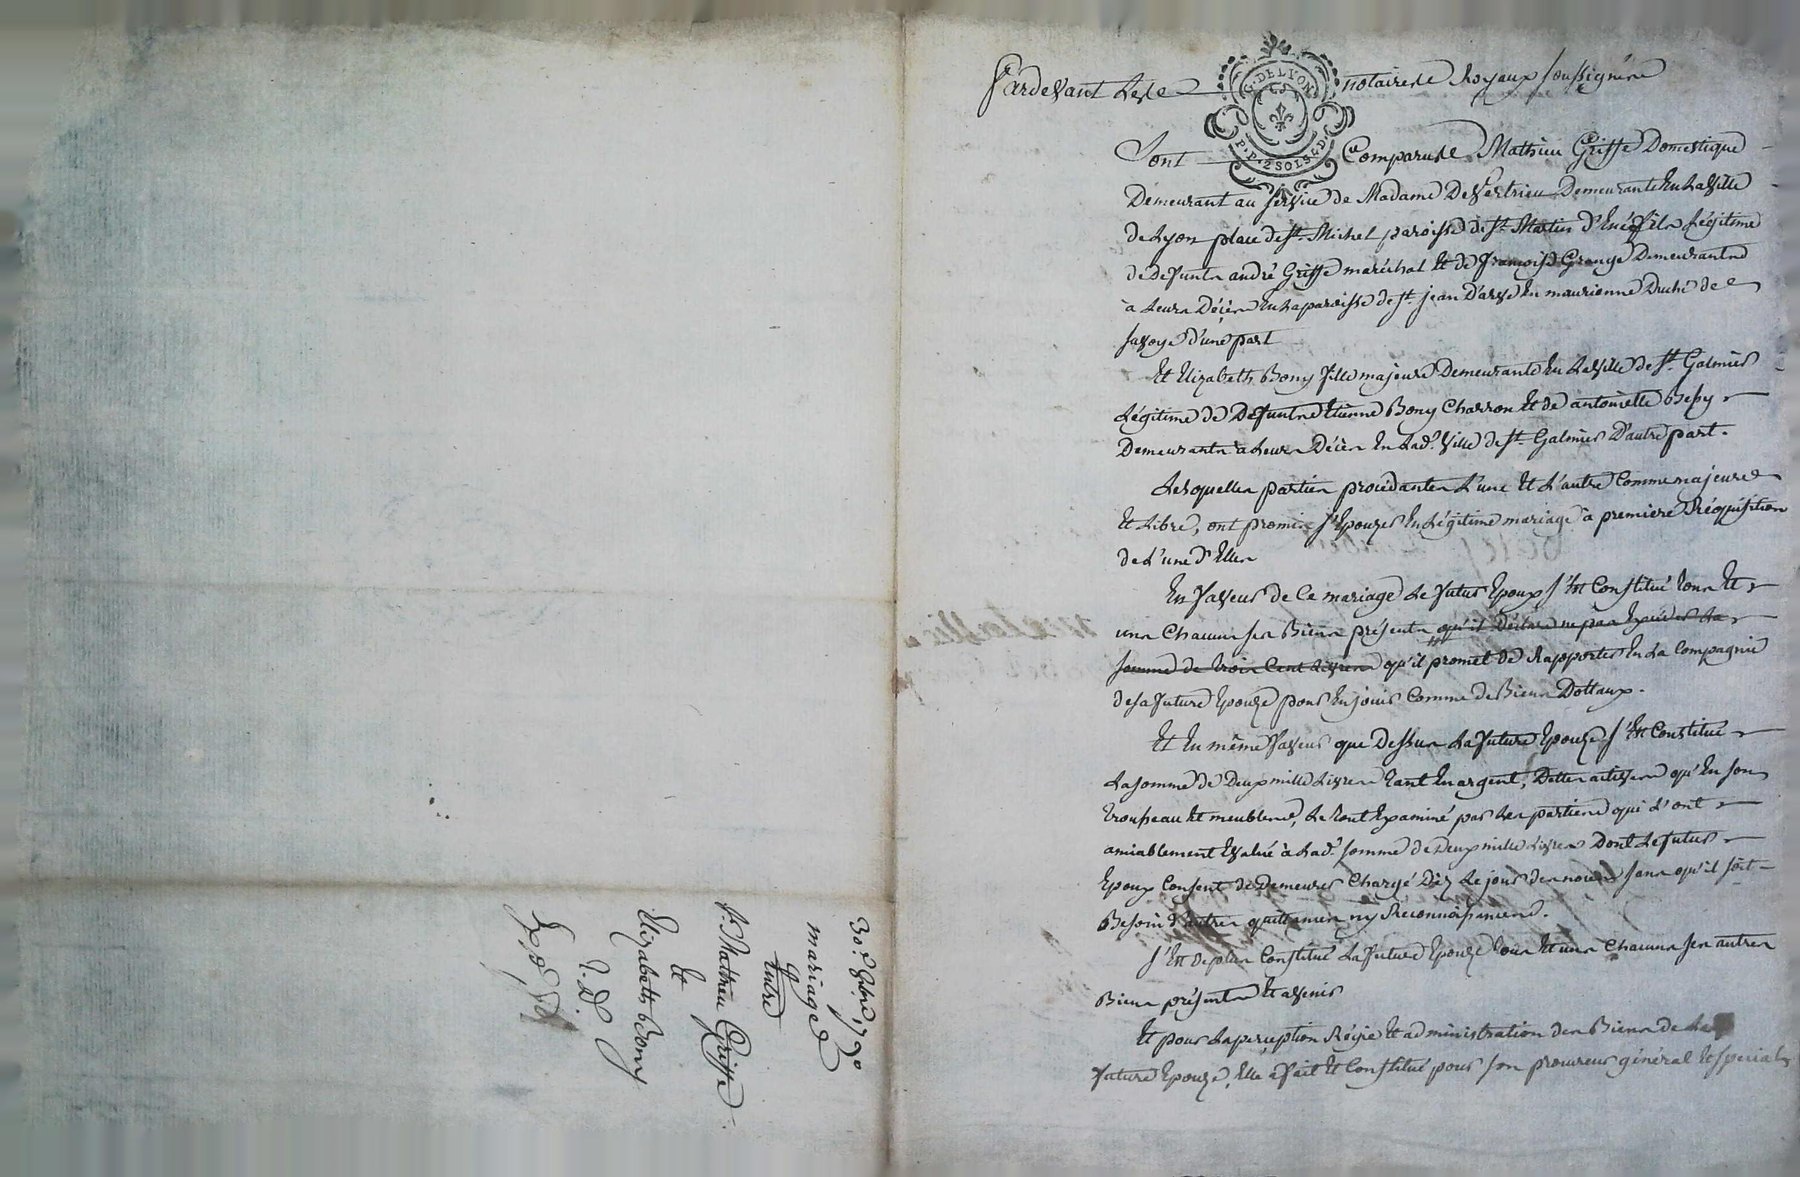 Pardevant Les notaires Royaux soussignés
G. DE LYON
P. P. 2 SOLS 4 D.
Sont Comparus Mathieu Griffe Domestique
Demeurant au service de Madame De Vertrieu Demeurante En La Ville
de Lyon place de St. Michel paroisse de St. Martin d'Enéz fils Légitime
de Defunts andré Griffe maréchal Et de françoise Grange Demeurants
à Leurs Décès En La paroisse de St. jean D'arve En maurienne Duché de
savoye d'une part
Et Elizabeth Bony fille majeure Demeurante En La Ville de St. Galmier
Légitime de Defunts Etienne Bony Charron Et de antoinette Bessy
Demeurants à Leurs Décès En Lad. Ville de St. Galmier D'autre part.
Lesquelles parties procédantes L'une Et L'autre Comme majeures
Et Libre, ont promis s'Epouzer En Légitime mariage à premiere Réquisition
de L'une d'Elles
En faveur de Ce mariage Le futur Epoux s'Est Constitué tous Et
uns Chacuns ses Biens présents qu'il Déclare ne pas Exceder La
somme de trois Cent Livres qu'il promet de Rapporter En La Compagnie
de sa future Epouze pour En jouir Comme de Biens Dottaux.
Et En même faveur que Dessus La future Epouze s'Est Constitué
La somme de Deux mille Livres tant En argent, Dettes actives qu'En son
trousseau Et meubles, Le tout Examiné par Les parties qui L'ont
amiablement Evalué à Lad. somme de Deux mille Livres Dont Le futur
Epoux Consent de Demeurer Chargé Dèz Le jour des noces sans qu'il soit
Besoin d'autres quittances ny Reconnoissances.
s'Est de plus Constitué La future Epouze tous Et uns Chacuns ses autres
Biens présents Et avenir
Et pour La perception Régie Et administration des Biens de La
future Epouze, Elle a fait Et Constitué pour son procureur général Et spécial
30. 8bre 1790
mariage
Entre
Sr. Mathieu Griffe
Et
Elizabeth Bony